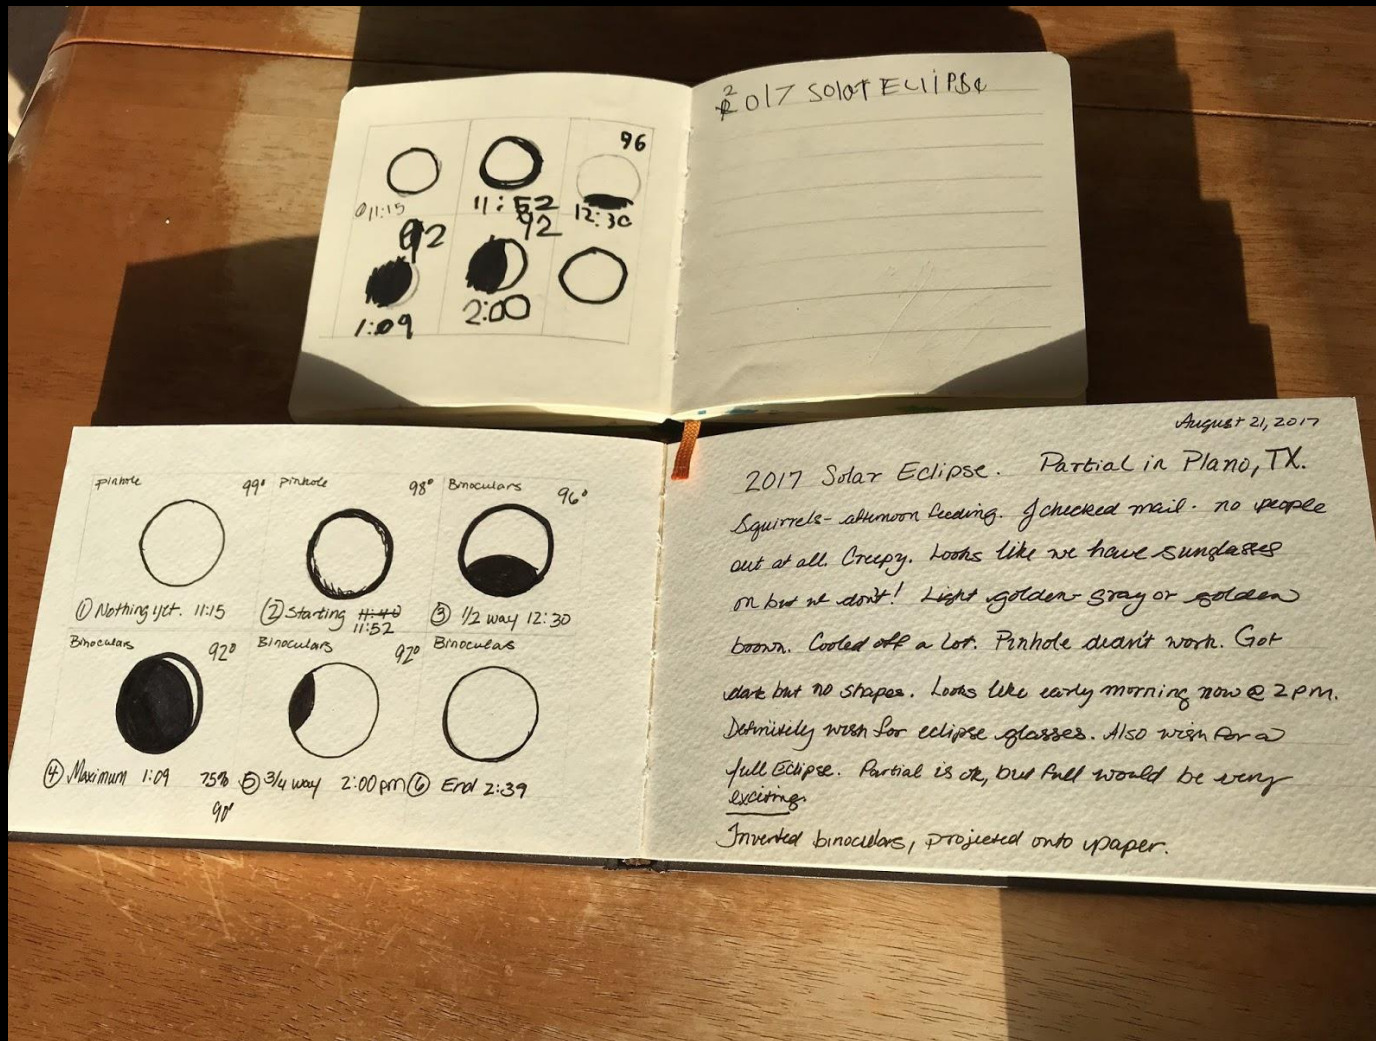 96
11:15
11:52
12:30
92
92
1:09
2:00
2017 Solar Eclipse
Pinhole 99° Pinhole 98° Binoculars 96°
① Nothing yet. 11:15 ② Starting 11:40 ③ 1/2 way 12:30
11:52
Binoculars 92° Binoculars 92° Binoculars
④ Maximum 1:09 75% ⑤ 3/4 way 2:00pm ⑥ End 2:39
90°
August 21, 2017
2017 Solar Eclipse. Partial in Plano, TX.
Squirrels - afternoon feeding. I checked mail. no people
out at all. Creepy. Looks like we have sunglasses
on but we don't! Light golden-gray or golden
brown. Cooled off a lot. Pinhole didn't work. Got
dark but no shapes. Looks like early morning now @ 2pm.
Definitely wish for eclipse glasses. Also wish for a
full Eclipse. Partial is ok, but full would be very
exciting.
Inverted binoculars, projected onto paper.